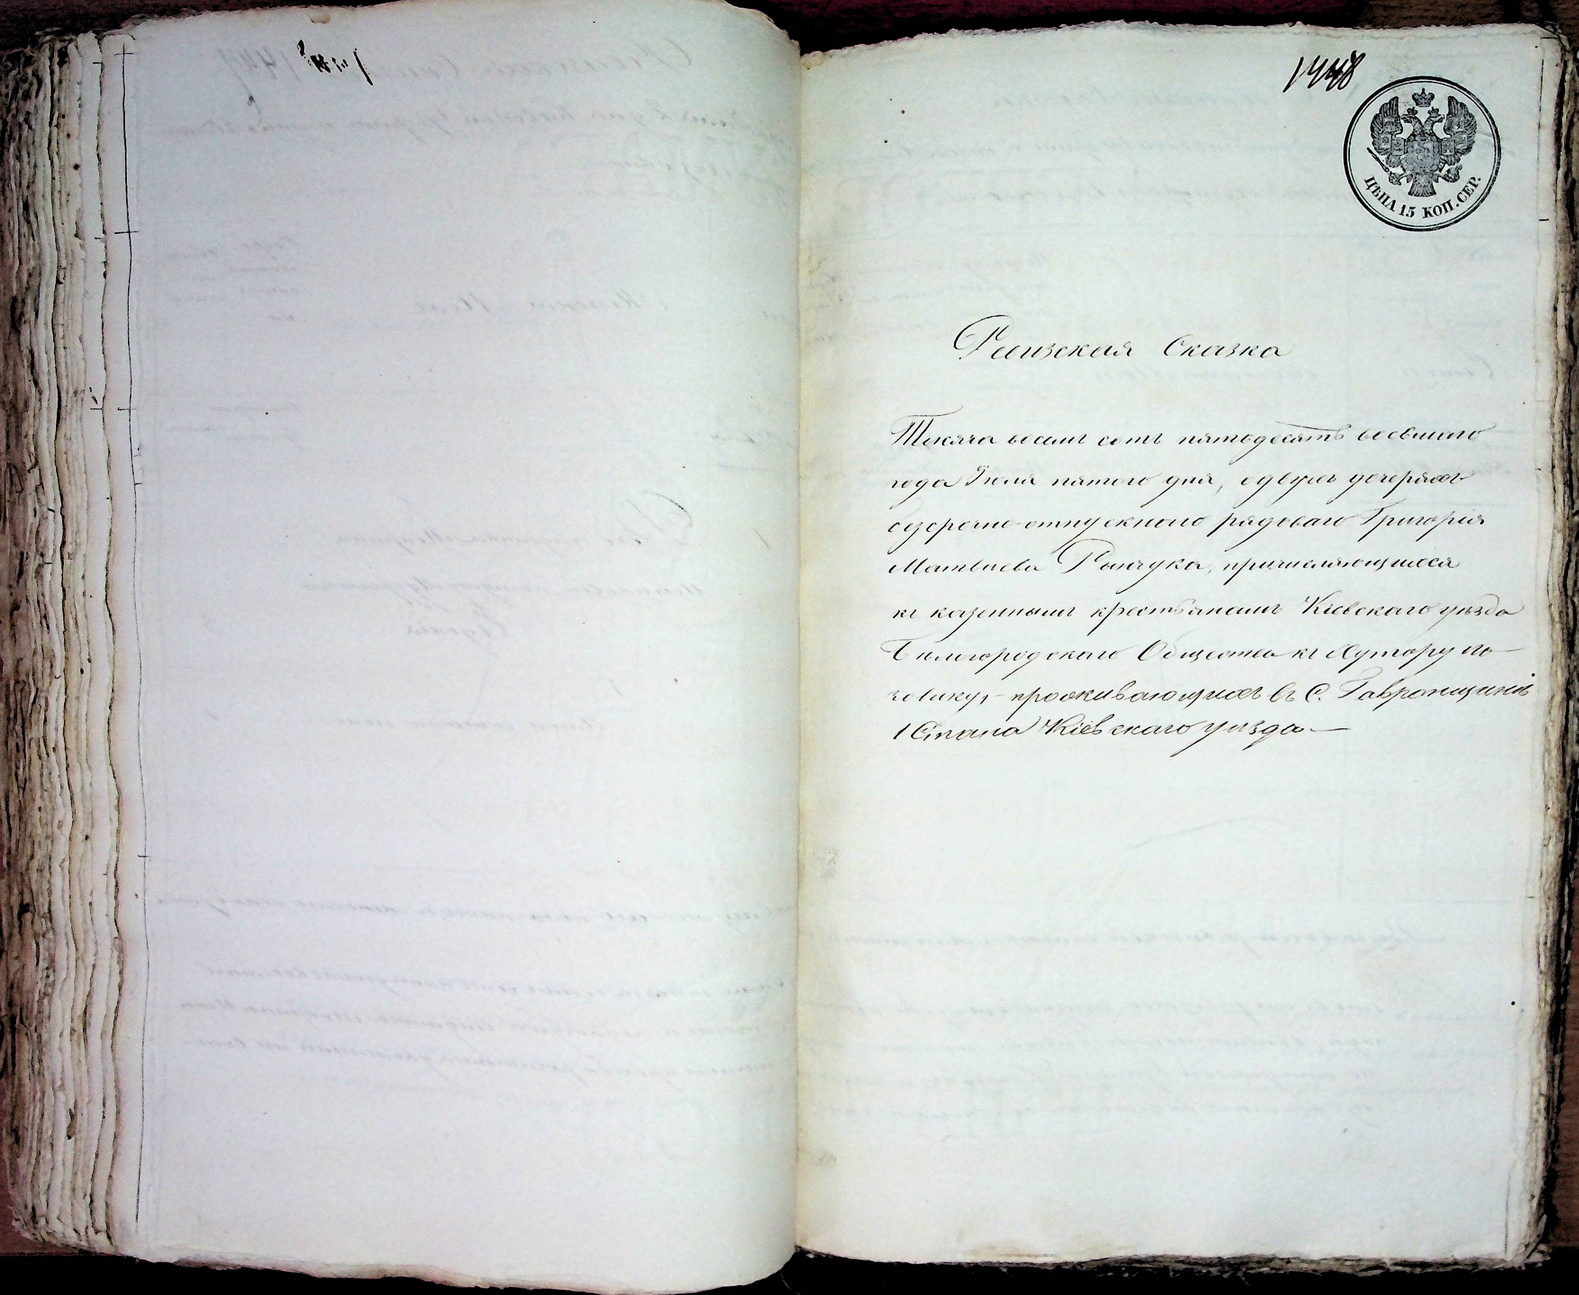 1448
ЦѢНА 15 КОП. СЕР.
Ревизская Сказка
Тысяча восемь сотъ пятьдесятъ восьмого
года Іюля пятого дня, о двухъ дочеряхъ
безсрочно-отпускного рядоваго Григорія
Матвѣева, причисляющихся
къ казеннымъ крестьянамъ Кіевскаго уѣзда
Бѣлогородскаго Общества къ Хутору
проживающихъ въ С. Гавронщинѣ
1 Стана Кіевскаго уѣзда.—